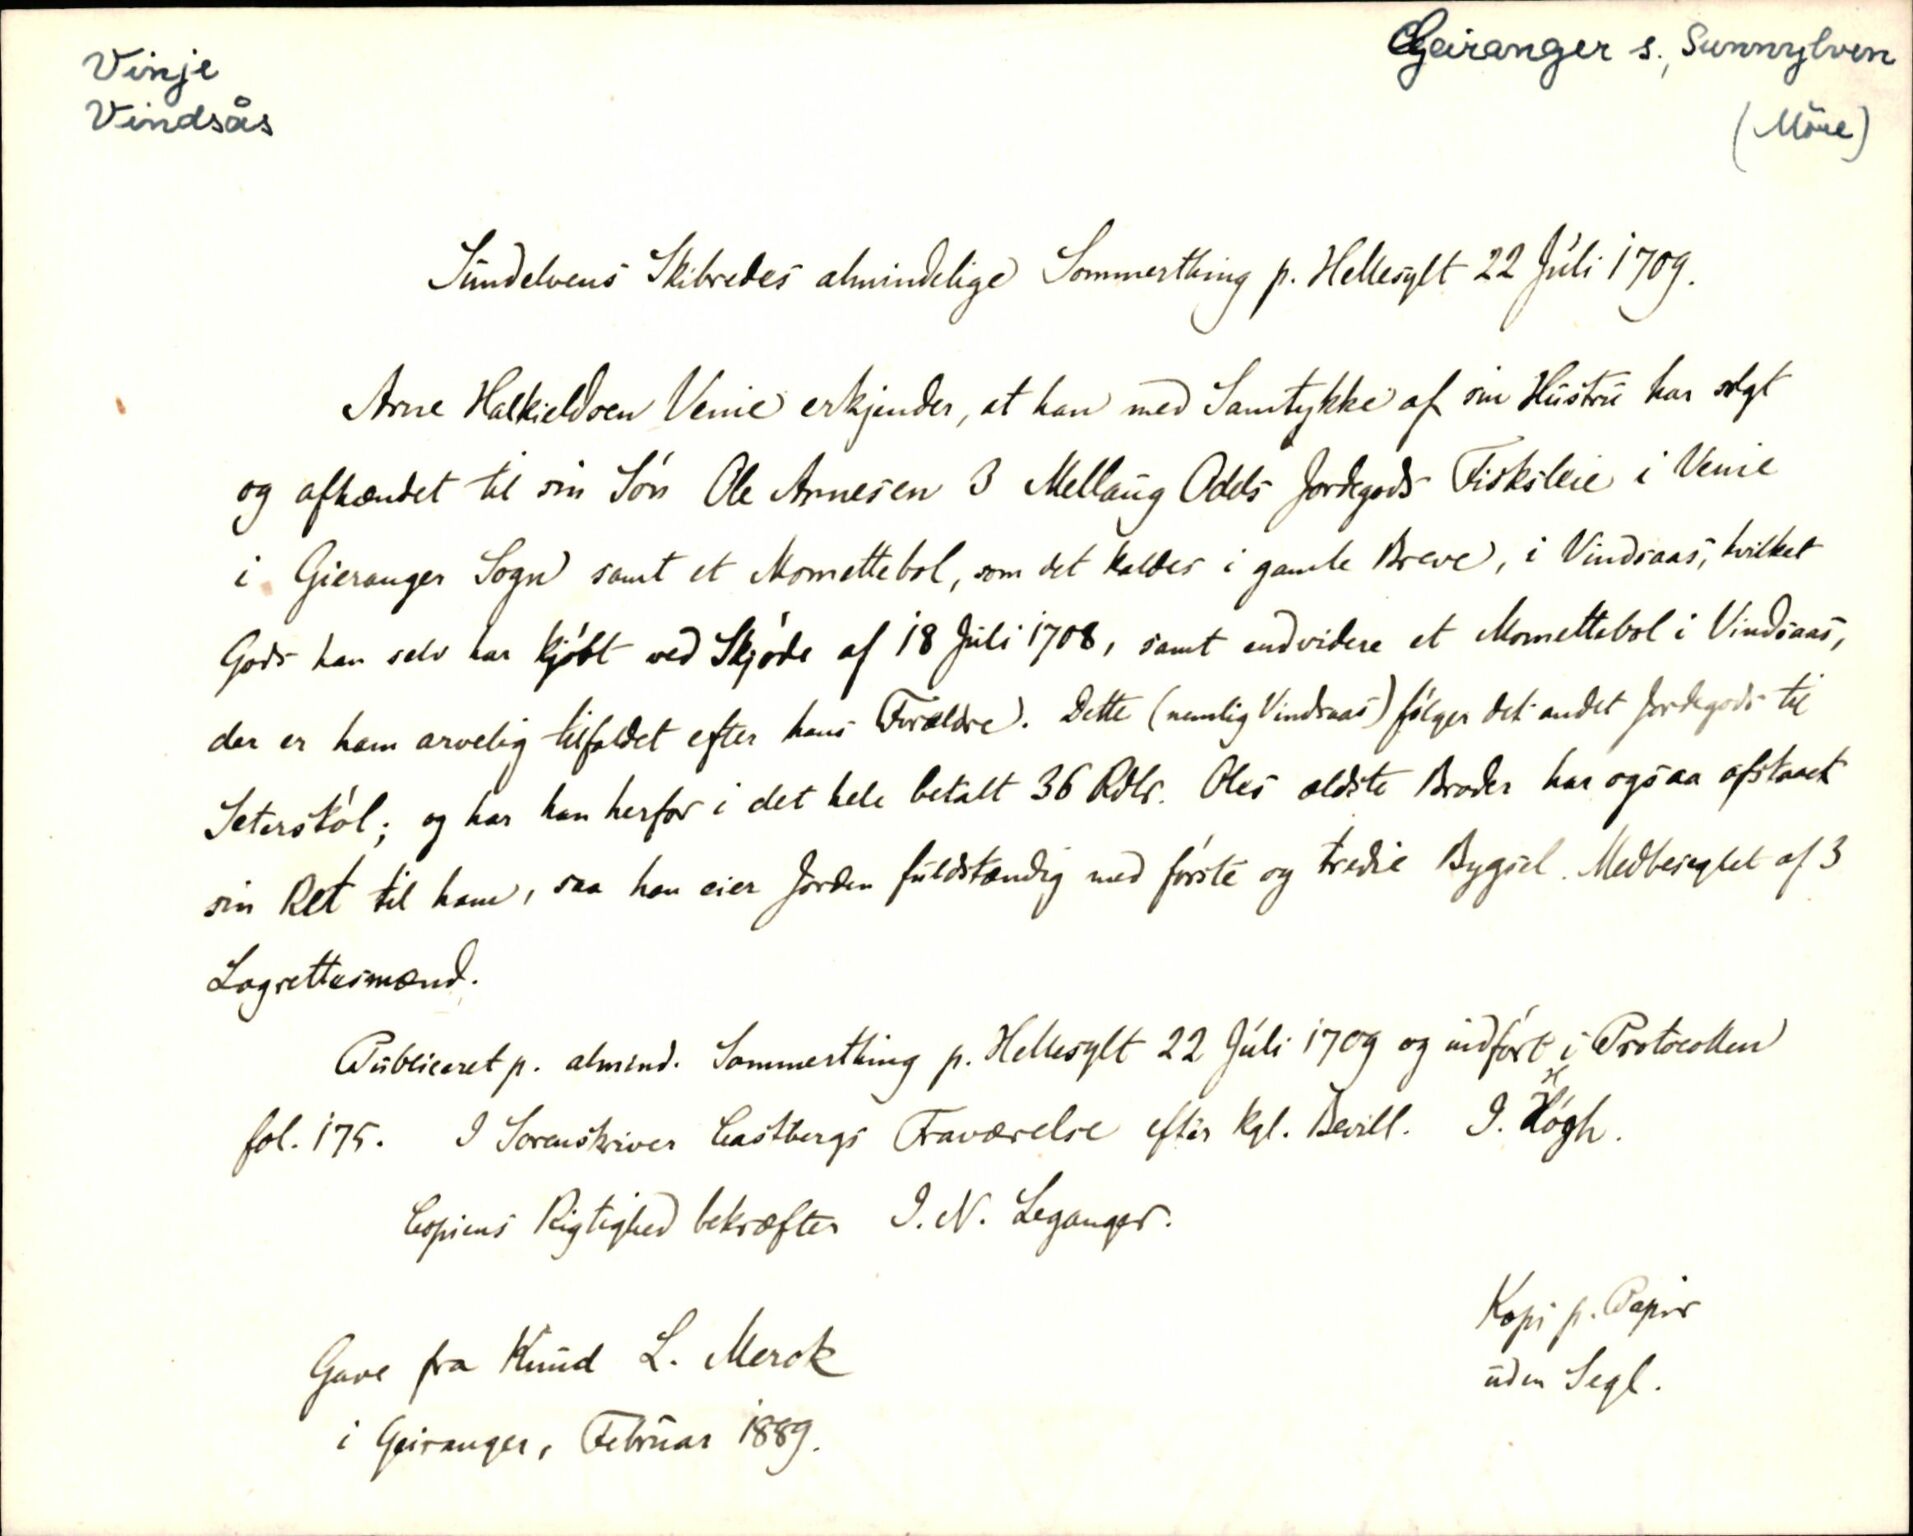 Vinje
Vindsås
Geiranger s., Sunnylven
(Möre)
Sündelvens Skibredes almindelige Sommerthing p. Hellesylt 22 Júli 1709.
Arne Halkieldsen Venie erkjender, at han med Samtykke af sin Hüstrü har solgt
og afhændet til sin Són Ole Arnesen 3 Mellaüg Odels Jordegods Fisksleie i Venie
i Gieranger Sogn samt et Momettebol, som det kaldes i gamle Breve, i Vindsaas, hvilket
Gods han selv har kjóbt ved Skjóde af 18 Juli 1708, samt endvidere et Momettebol i Vindsaas,
der er ham arvelig tilfaldet efter hans Forældre. Dette (nemlig Vindsaas) fólger det andet Jordegods til
Seterstól; og har han herfor i det hele betalt 36 Rdlr. Oles ældste Broder har ogsaa afstaaet
sin Ret til ham, saa han eier Jorden füldstændig med fórste og tredie Bygsel. Medbeseglet af 3
Lagrettesmænd.
Pübliceret p. almind. Sommerthing p. Hellesylt 22 Júli 1709 og indfórt i Protocollen
fol. 175. I Sorenskriver Castbergs Fraværelse efter kgl. Bevill. I. Hógh.
Copiens Rigtighed bekræfter I. N. Leganger.
Kopi p. Papir
üden Segl.
Gave fra Knüd L. Merok
i Geiranger, Febrüar 1889.